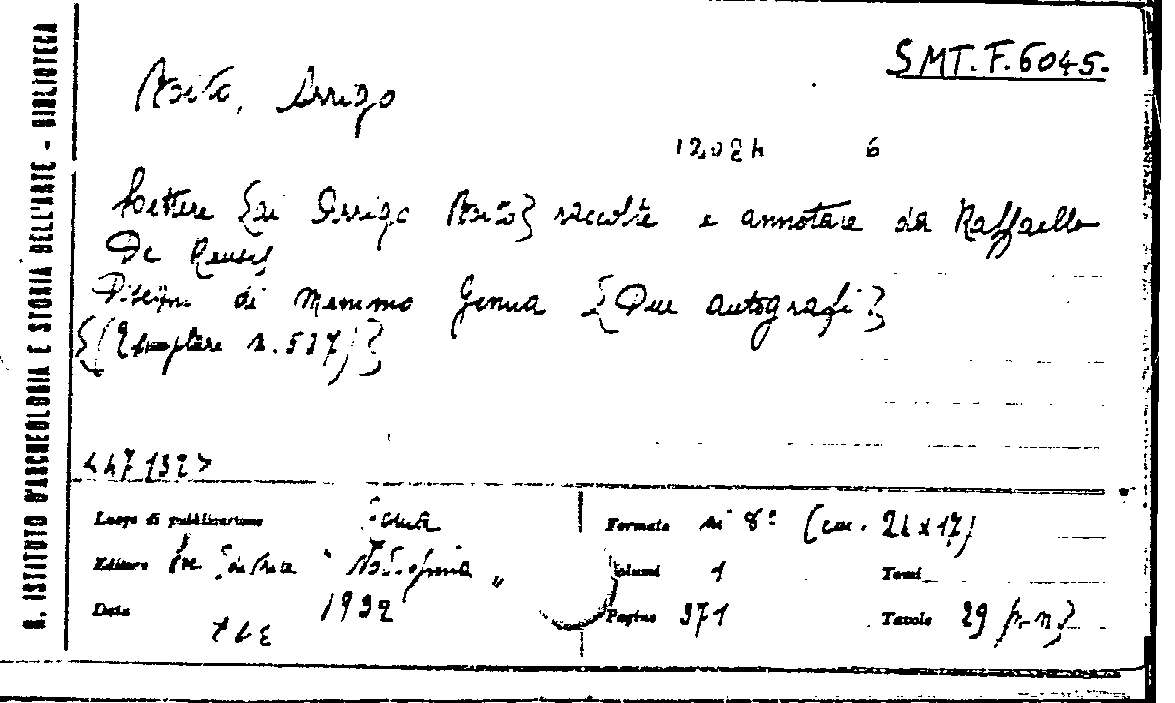 R. ISTITUTO D'ARCHEOLOGIA E STORIA DELL'ARTE - BIBLIOTECA
SMT.F.6045.
Boito, Arrigo
12084 6
Lettere {di Arrigo Boito} raccolte e annotate da Raffaello
De Rensis
Disegn. di Memmo Genua {Due autografi}
{(Esemplare n. 537)}
<47132>
Luogo di pubblicazione Roma Formato in 8° (cm. 24x17)
Editore Soc. Editrice "Novissima" Volumi 1 Tomi
Data 1932 Pagine 371 Tavole 29 p. n.}